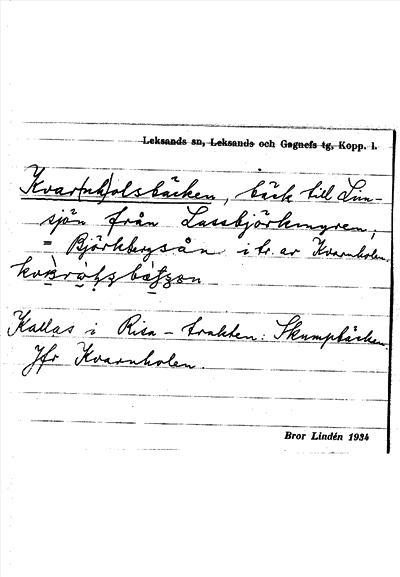 Leksands sn, Leksands och Gagnefs tg, Kopp. l.
Kvar(nh)olsbäcken, bäck till Lin-
sjön från Lassbjörkmyren,
= Björkbergsån i tr. av Kvarnholen.
Kallas i Risa-trakten: Skumpbäcken.
Jfr Kvarnholen.
Bror Lindén 1934